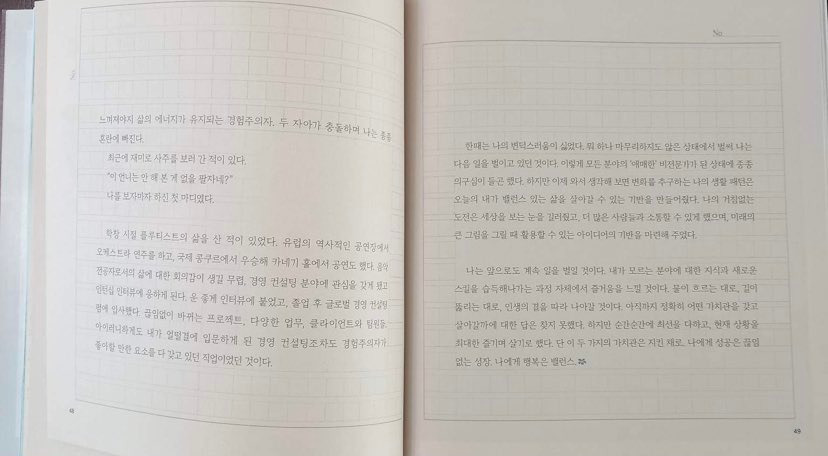 느껴져야지 삶의 에너지가 유지되는 경험주의자. 두 자아가 충돌하며 나는 종종
혼란에 빠진다.
최근에 재미로 사주를 보러 간 적이 있다.
"이 언니는 안 해 본 게 없을 팔자네?"
나를 보자마자 하신 첫 마디였다.
학창 시절 플루티스트의 삶을 산 적이 있었다. 유럽의 역사적인 공연장에서
오케스트라 연주를 하고, 국제 콩쿠르에서 우승해 카네기 홀에서 공연도 했다. 음악
전공자로서의 삶에 대한 회의감이 생길 무렵, 경영 컨설팅 분야에 관심을 갖게 됐고
인턴십 인터뷰에 응하게 된다. 운 좋게 인터뷰에 붙었고, 졸업 후 글로벌 경영 컨설팅
펌에 입사했다. 끊임없이 바뀌는 프로젝트, 다양한 업무, 클라이언트와 팀원들.
아이러니하게도 내가 얼떨결에 입문하게 된 경영 컨설팅조차도 경험주의자가
좋아할 만한 요소를 다 갖고 있던 직업이었던 것이다.
48
No
한때는 나의 변덕스러움이 싫었다. 뭐 하나 마무리하지도 않은 상태에서 벌써 나는
다음 일을 벌이고 있던 것이다. 이렇게 모든 분야의 '애매한' 비전문가가 된 상태에 종종
의구심이 들곤 했다. 하지만 이제 와서 생각해 보면 변화를 추구하는 나의 생활 패턴은
오늘의 내가 밸런스 있는 삶을 살아갈 수 있는 기반을 만들어줬다. 나의 거침없는
도전은 세상을 보는 눈을 길러줬고, 더 많은 사람들과 소통할 수 있게 했으며, 미래의
큰 그림을 그릴 때 활용할 수 있는 아이디어의 기반을 마련해 주었다.
나는 앞으로도 계속 일을 벌일 것이다. 내가 모르는 분야에 대한 지식과 새로운
스킬을 습득해나가는 과정 자체에서 즐거움을 느낄 것이다. 물이 흐르는 대로, 길이
뚫리는 대로, 인생의 결을 따라 나아갈 것이다. 아직까지 정확히 어떤 가치관을 갖고
살아갈까에 대한 답은 찾지 못했다. 하지만 순간순간에 최선을 다하고, 현재 상황을
최대한 즐기며 살기로 했다. 단 이 두 가지의 가치관은 지킨 채로. 나에게 성공은 끊임
없는 성장. 나에게 행복은 밸런스.
49